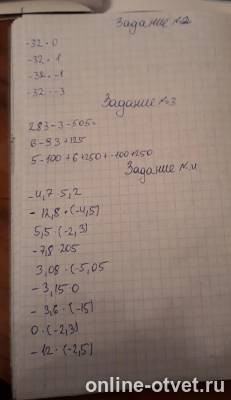 Задание №2
-32 · 0
-32 · 1
-32 · -1
-32 · -3
Задание №3
283-3-505=
6-93+125
5-100+6+250+-100+250
Задание №4
-4,7 · 5,2
-12,8 · (-4,5)
5,5 · (-2,3)
-7,8 · 205
3,08 · (-5,05
-3,15 · 0
-3,6 · (-15)
0 · (-2,3)
-12 · (-2,5)
online-otvet.ru